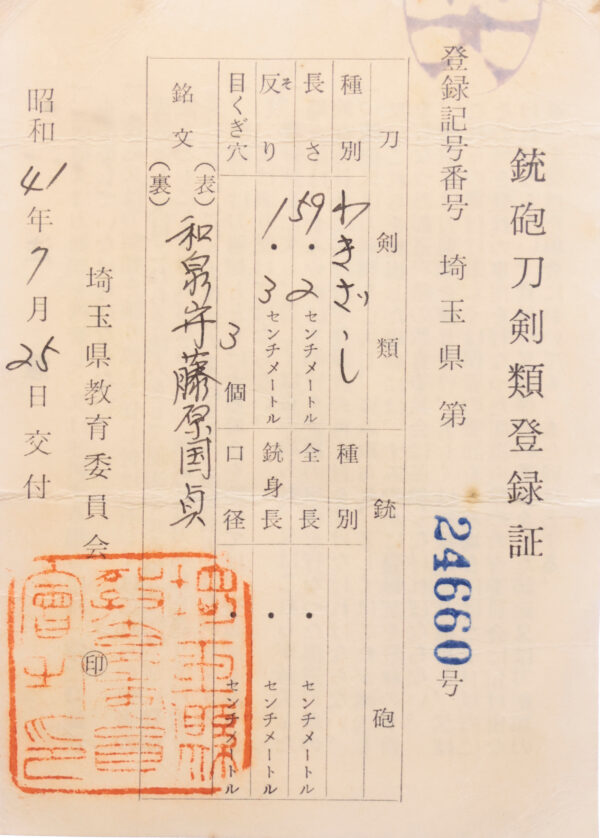 銃砲刀剣類登録証
登録記号番号 埼玉県 第 24660号
刀剣類
種別 わきざし
長さ 59.2センチメートル
反り そ 1.3センチメートル
目くぎ穴 3個
銃砲
種別
全長 ・ センチメートル
銃身長 ・ センチメートル
口径 ・ センチメートル
銘文 (表) 和泉守藤原国貞
(裏)
昭和41年7月25日交付
埼玉県教育委員会 印
埼玉県教育委員会之印